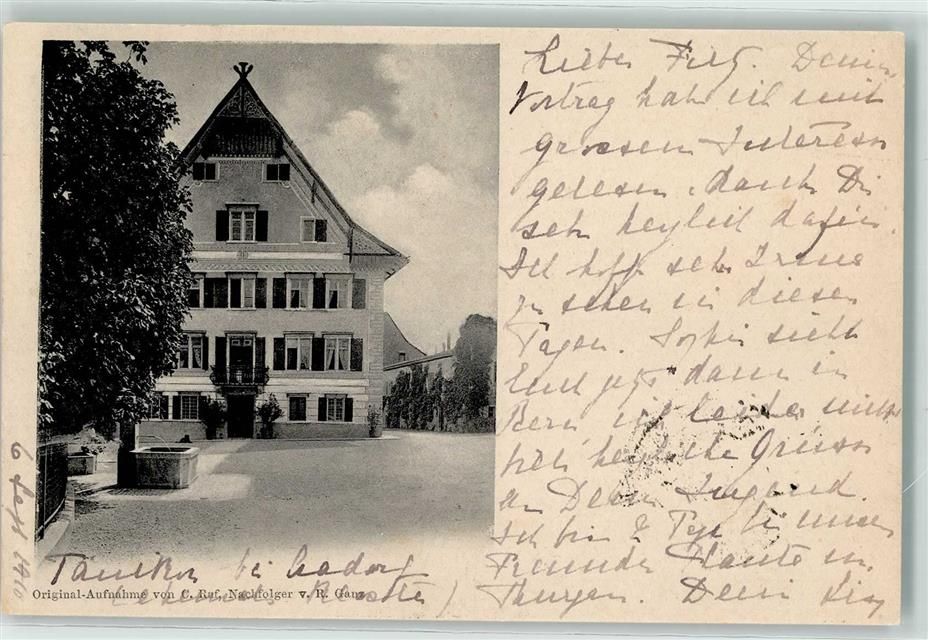 Lieber Fritz. Deinen
Vortrag habe ich mit
grossem Interesse
gelesen, danke Dir
sehr herzlich dafür.
Ich hoffe sehr Irene
zu sehen in diesen
Tagen. Sophie sieht
Euch jetzt dann in
Bern ich leider nicht
viele herzliche Grüsse
an Deine Jugend.
Ich bin 2 Tage bei unsern
Freunden im
Thurgau. Dein
6 Sept 1910
Tänikon bei Aadorf
Original-Aufnahme von C. Ruf, Nachfolger v. R. Ganz.
Kloster)